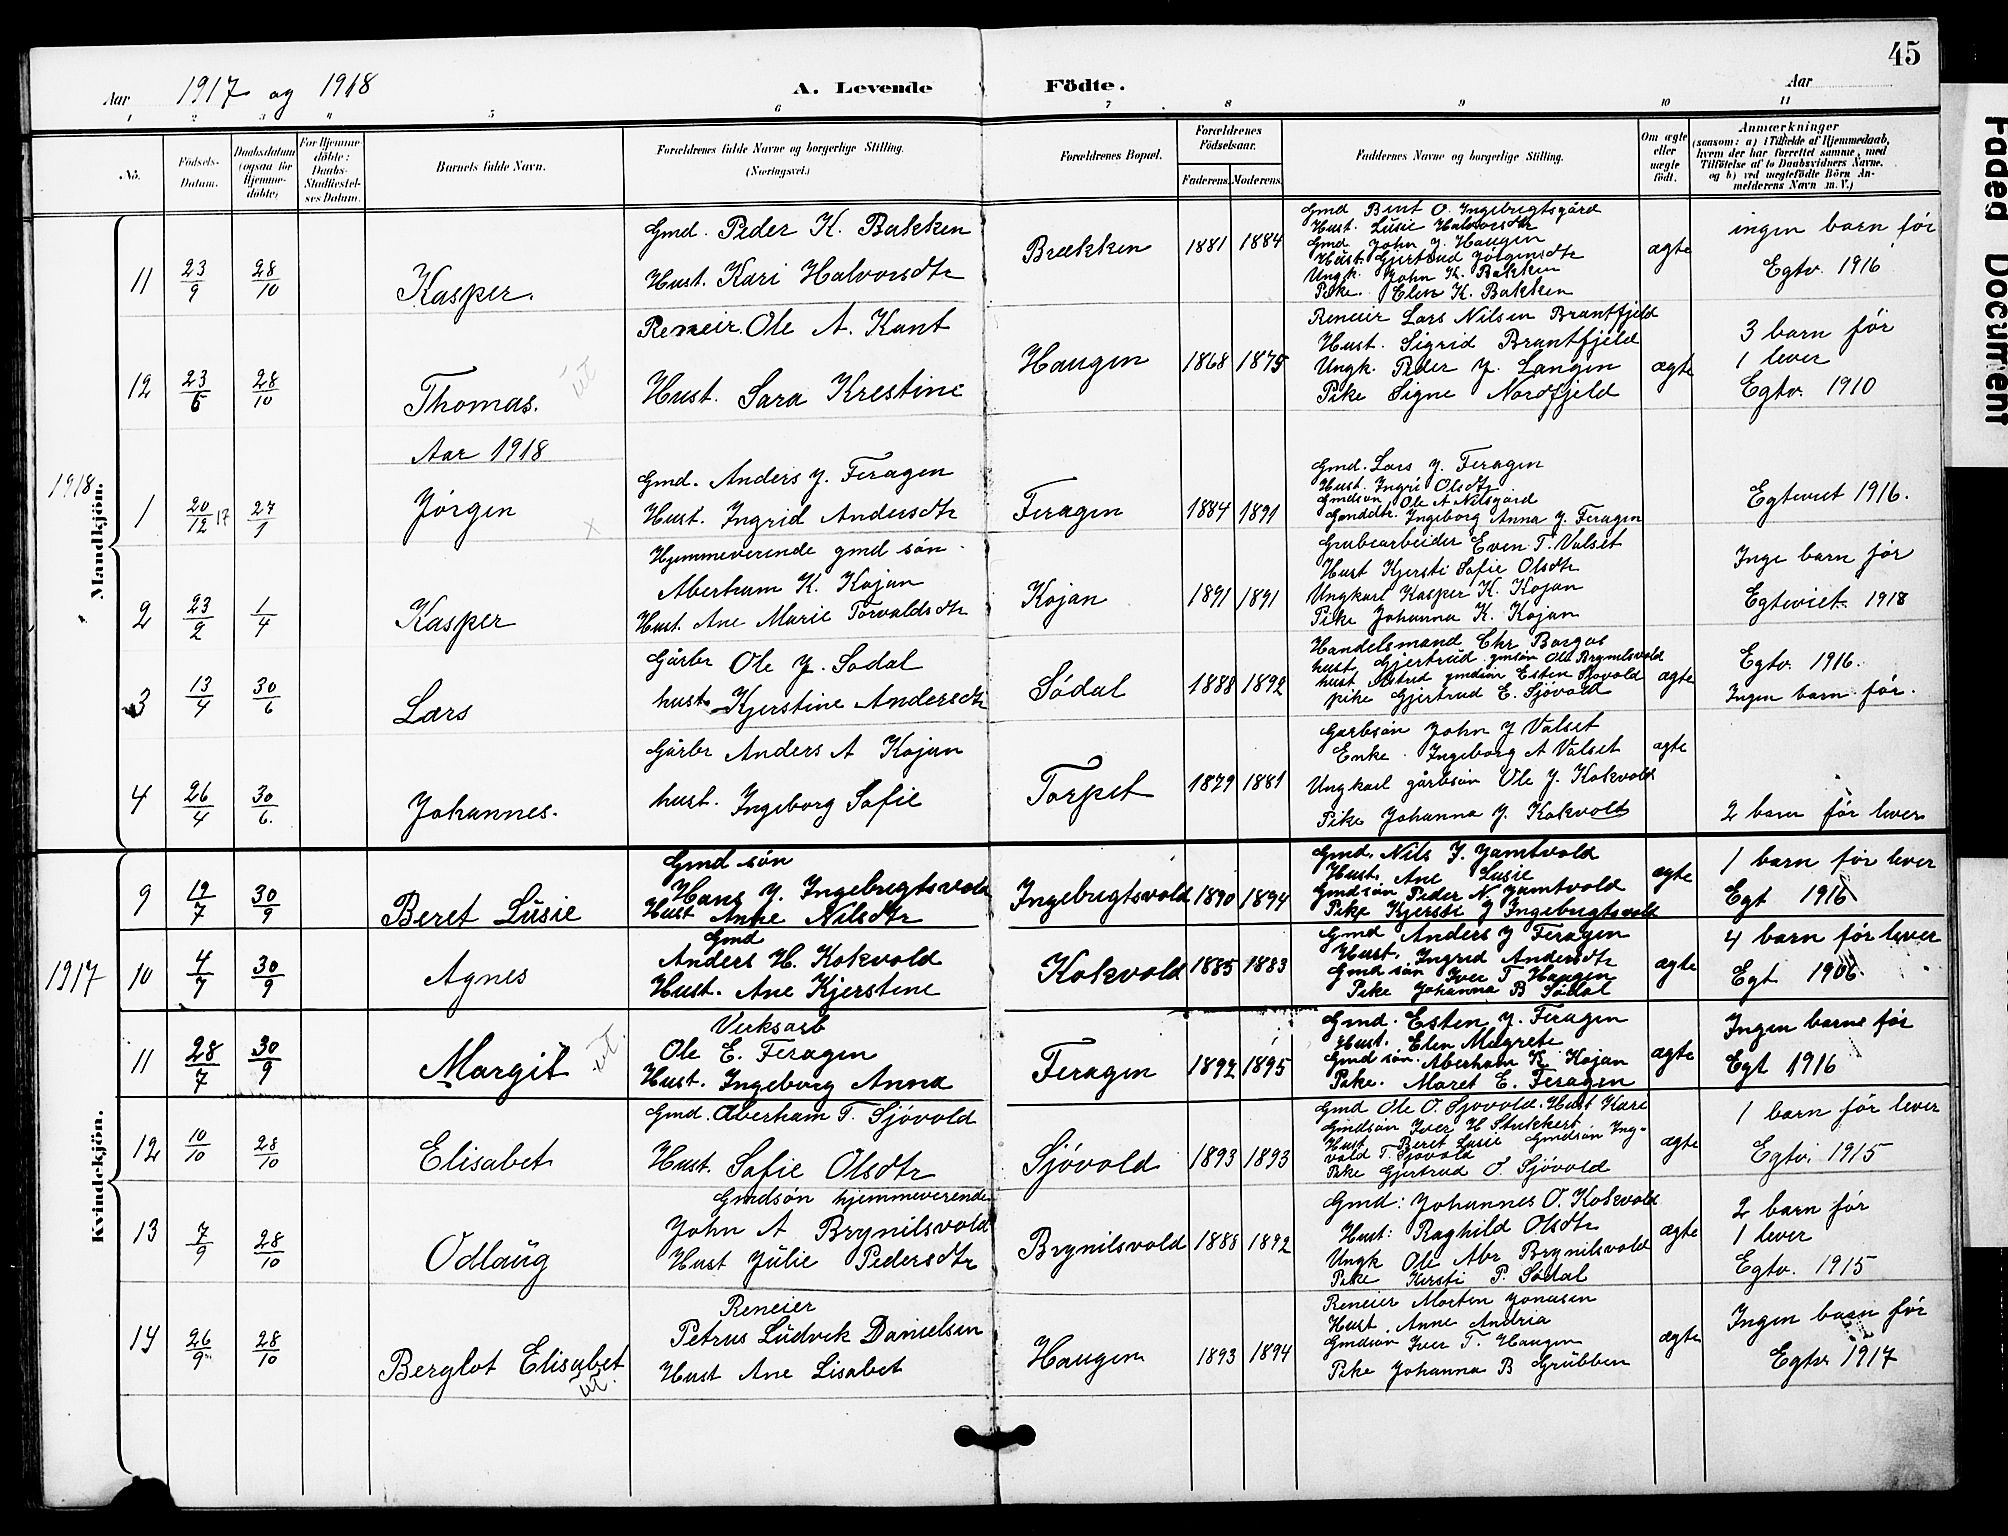 45
Aar 1917 og 1918
A. Levende Födte.
Aar
1 2 3 4 5 6 7 8 9 10 11
No.
Födsels-Datum.
Daabsdatum (ogsaa for Hjemme-döbte)
For Hjemme-döbte: Daabs-Stadfæstel-ses Datum.
Barnets fulde Navn.
Forældrenes fulde Navne og borgerlige Stilling. (Næringsvei.)
Forældrenes Bopæl.
Forældrenes Födselsaar.
Faderens. Moderens.
Faddernes Navne og borgerlige Stilling.
Om ægte eller uægte födt.
Anmærkninger
(saasom: a) i Tilfælde af Hjemmedaab, hvem der har forrettet samme, med Tilföielse af to Daabsvidners Navne. og b) ved uægtefödte Börn An-melderens Navn m. V.)
1918.
Mandkjön.
11 23/9 28/10 Kasper.
Gmd. Peder K. Bakken
Hust. Kari Halvorsdtr
Brækken 1881 1884
Gmd Bent O. Ingebrigtsgård
Hust. Lusie Halvorsdtr
Gmd John J. Haugen
Hust. Gjertrud Jörgensdtr
Ungk. John K. Bakken
Pike. Elen K. Bakken
ægte
ingen barn før
Egtv. 1916
12 23/5 28/10 Thomas. ut
Reneier Ole A. Kant
Hust. Sara Krestine
Haugen 1868 1875
Reneier Lars Nilsen Brantfjeld
Hust. Sigrid Brantfjeld
Ungk. Peder J. Langen
Pike Signe Nordfjeld
ægte
3 barn før
1 lever
Egtv. 1910
Aar 1918
1 20/12 17 27/1 Jørgen x
Gmd. Anders J. Feragen
Hust. Ingrid Andersdtr
Feragen 1884 1891
Gmd. Lars J. Feragen
Hust. Ingri Olsdtr
Gmdsøn Ole A Nilsgård
Gmddtr. Ingeborg Anna J. Feragen
Egteviet 1916.
2 23/2 1/4 Kasper
Hjemmeverende gmd søn
Aberham K. Kojan
Hust. Ane Marie Torvaldsdtr
Kojan 1891 1891
Grubearbeider Even T. Valset
Hust Kjersti Sofie Olsdtr
Ungkarl Kasper K. Kojan
Pike Johanna K. Kojan
Inge barn før
Egteviet 1918
3 13/4 30/6 Lars
Gårbr Ole J. Sødal
hust. Kjerstine Andersdtr
Södal 1888 1892
Handelsmand Chr Borgos
hust Gjertrud gmsøn Ole Brynilsvold
hust Astrid gmdsøn Esten Sjøvold
pike Gjertrud E. Sjövold
ægte
Egtv. 1916.
Ingen barn før.
4 26/4 30/6. Johannes.
Gårbr Anders A Kojan
hust. Ingeborg Sofie
Torpet 1879 1881
Garbsøn John J Valset
Enke Ingeborg A Valset
Ungkarl gårbsøn Ole J. Kokvold
Pike Johanna J. Kokvold
ægte
2 barn før lever
1917
Kvindekjön.
9 12/7 30/9 Beret Lusie
Gmd søn
Hans J. Ingebrigtsvold
Hust Anne Nilsdtr
Ingebrigtsvold 1890 1894
Gmd. Nils J. Jamtvold
Hust. Ane Lusie
Gmdsøn Peder N Jamtvold
Pike Kjersti J Ingebrigtsvold
ægte
1 barn før lever
Egt 1916
10 4/7 30/9 Agnes
Gmd
Anders H. Kokvold
Hust. Ane Kjerstine
Kokvold 1885 1883
Gmd Anders J Feragen
Hust. Ingrid Andersdtr
Gmd søn Iver T Haugen
Pike Johanna B Södal
ægte
4 barn før lever
Egt 1906
11 28/7 30/9 Margit ut
Verksarb
Ole E. Feragen
Hust. Ingeborg Anna
Feragen 1892 1895
Gmd. Esten J. Feragen
Hust. Elen Magrete
Gmd søn. Aberham K. Kojan
Pike. Maret E. Feragen
ægte
Ingen barne før
Egt 1916
12 10/10 28/10 Elisabet
Gmd. Aberham T. Sjövold
Hust. Sofie Olsdtr
Sjövold 1893 1893
Gmd Ole O. Sjøvold. Hust Kari
Gmdsøn Iver H Stukkert
Hust Beret Lusie Gmdsøn Ing-
vald T. Sjøvold
Pike Gjertrud O. Sjövold
ægte
1 barn før lever
Egtv. 1915
13 7/9 28/10 Odlaug
Gmdsøn hjemmeverende
John A Brynilsvold
Hust Julie Pedersdtr
Brynilsvold 1888 1892
Gmd: Johannes O. Kokvold
Hust: Raghild Olsdtr
Ungk Ole Abr Brynilsvold
Pike Kersti P. Södal
ægte
2 barn før
1 lever
Egtv. 1915
14 26/9 28/10 Berglot Elisabet ut.
Reneier
Petrus Ludvik Danielsen
Hust Ane Lisabet
Haugen 1893 1894
Reneier Morten Jonasen
Hust. Anne Andria
Gmdsøn Iver T. Haugen
Pike Johanna B Grubben
ægte
Ingen barn før
Egtv 1917
Faded Document